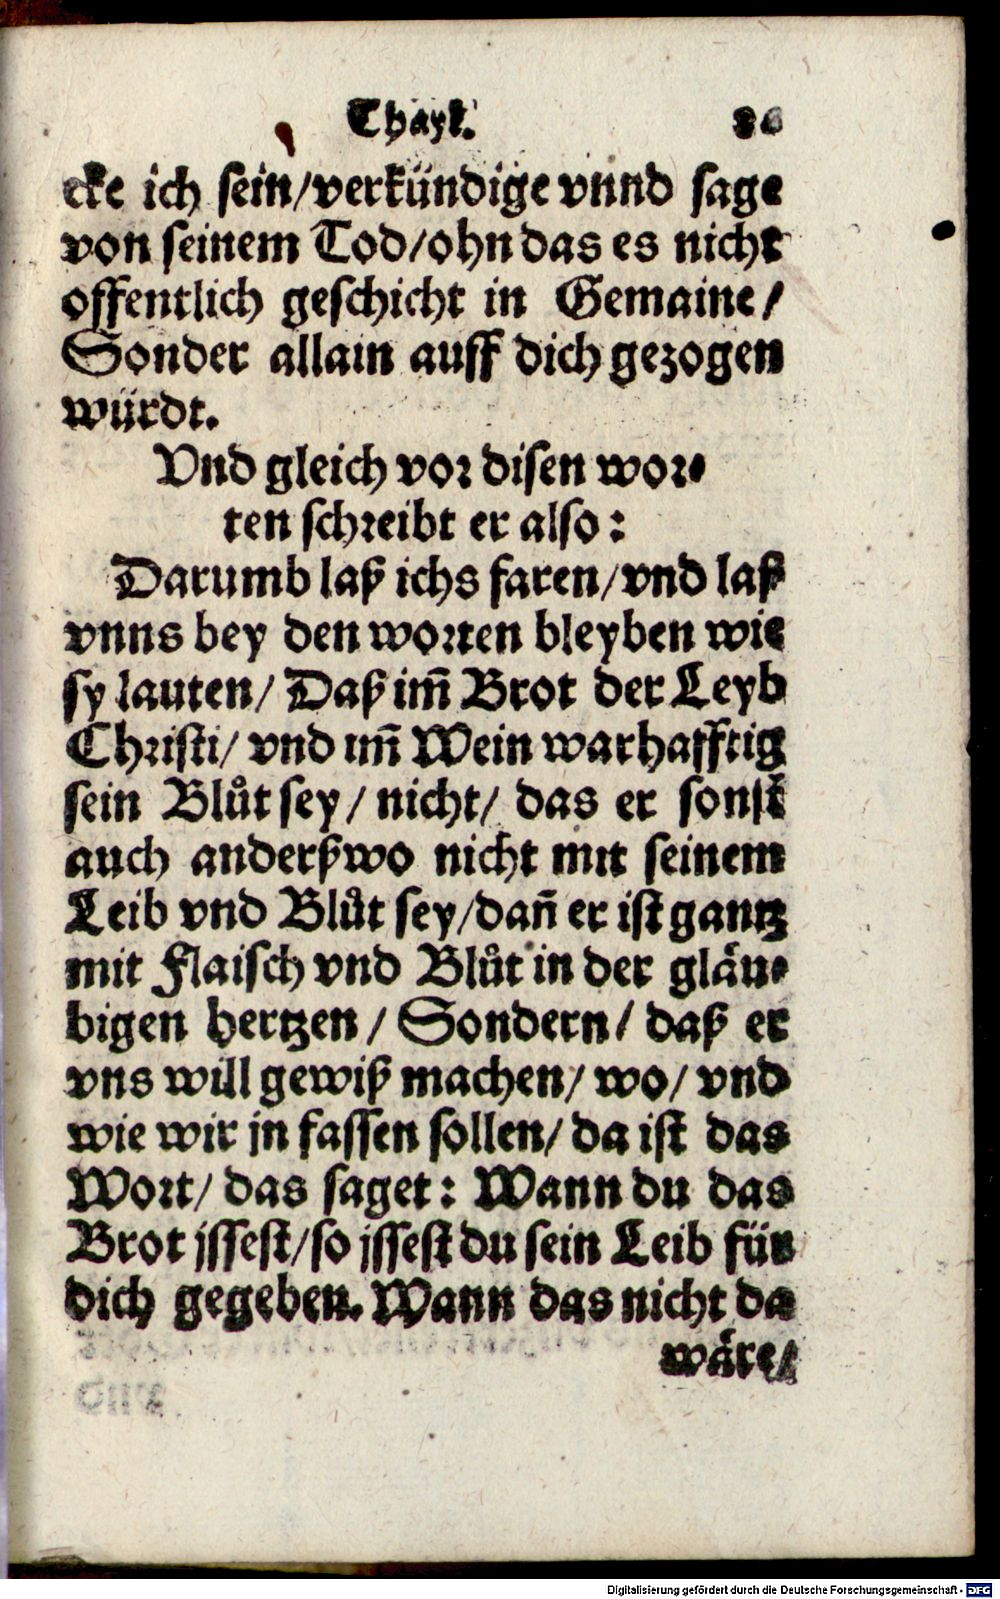 Thayl.
cke ich sein/verkündige vnnd sage
von seinem Tod/ohn das es nicht
offentlich geschicht in Gemaine/
Sonder allain auff dich gezogen
würdt.
Vnd gleich vor disen wor⸗
ten schreibt er also:
Darumb laß ichs faren/vnd laß
vnns bey den worten bleyben wie
sy lauten/ Daß im̃ Brot der Leyb
Christi/ vnd im̃ Wein warhafftig
sein Blůt sey/ nicht/ das er sonst
auch anderßwo nicht mit seinem
Leib vnd Blůt sey/dañ er ist gantz
mit Flaisch vnd Blůt in der gläu⸗
bigen hertzen/ Sondern/ daß er
vns will gewiß machen/ wo/ vnd
wie wir jn fassen sollen/ da ist das
Wort/ das saget: Wann du das
Brot jssest/so jssest du sein Leib für
dich gegeben. Wann das nicht da
wäre/
Digitalisierung gefördert durch die Deutsche Forschungsgemeinschaft - DFG